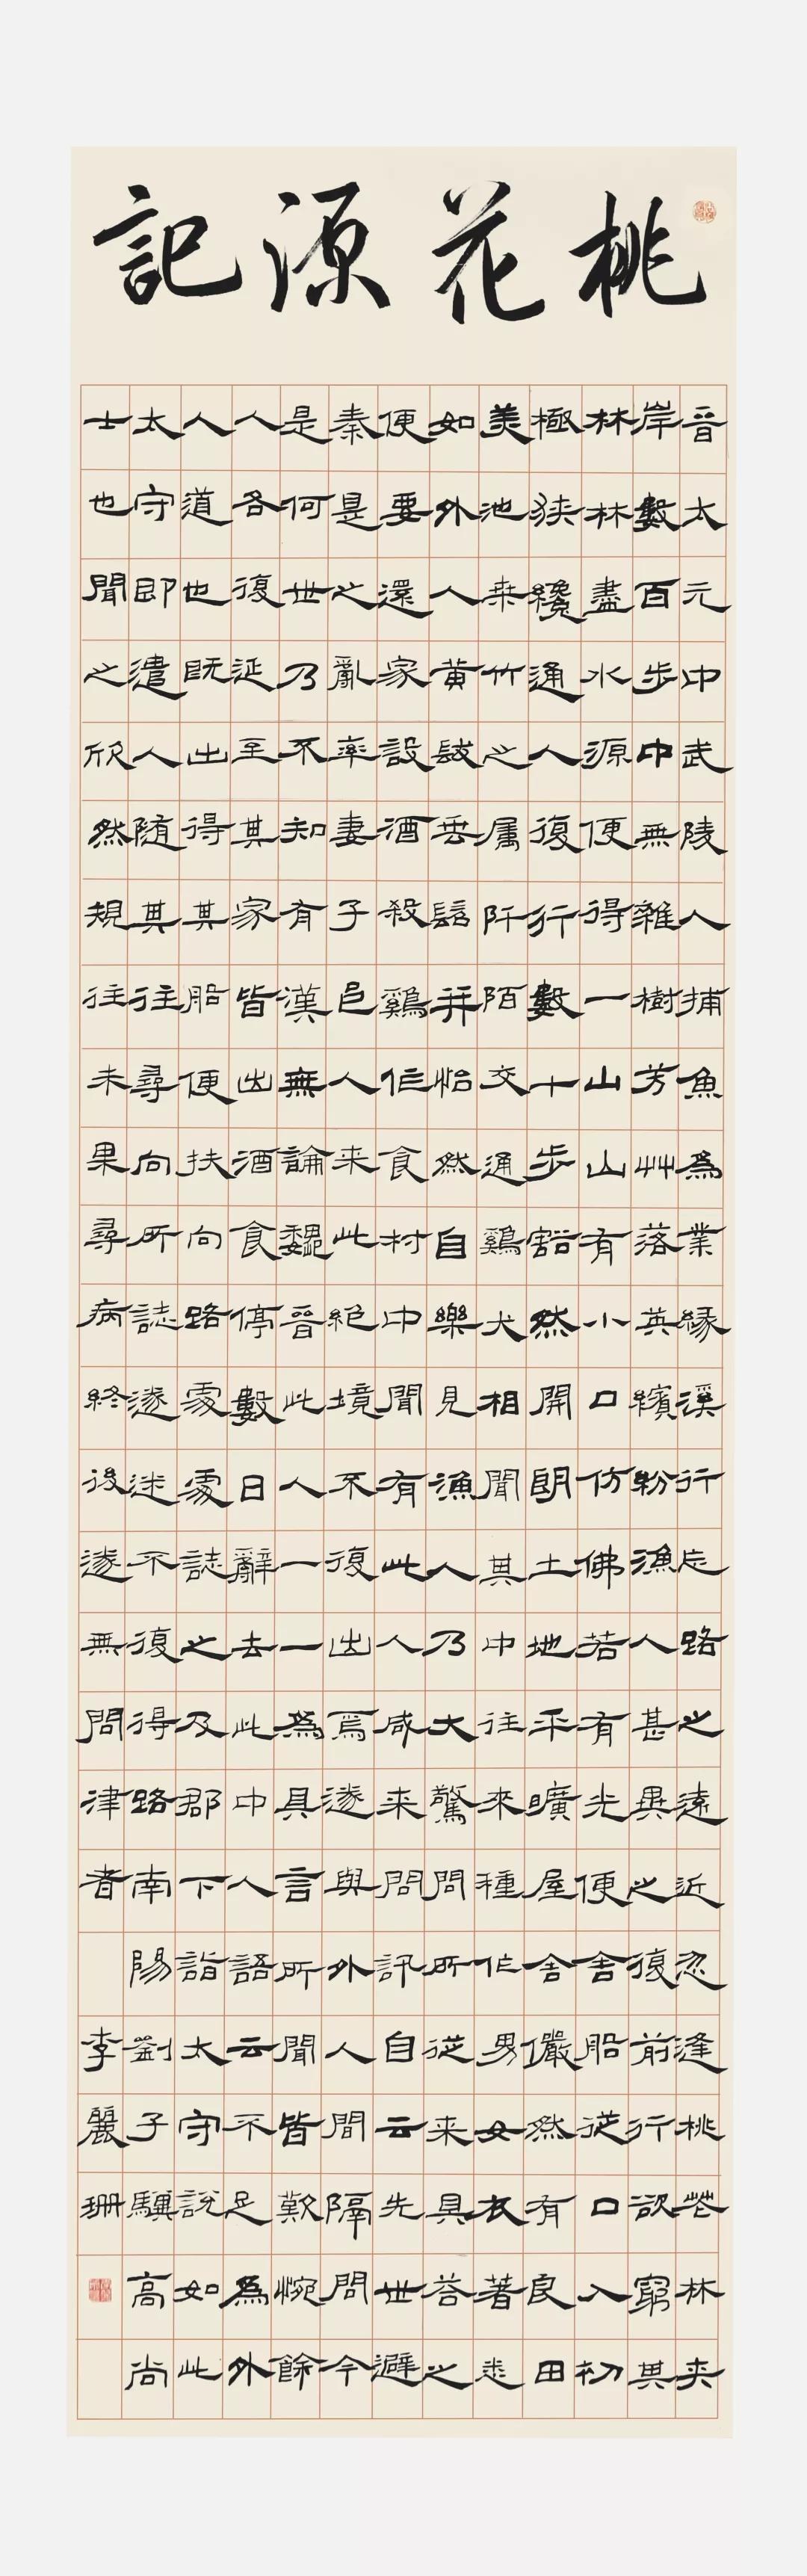 桃花源記
晉太元中武陵人捕魚為業緣溪行忘路之遠近忽逢桃花林夾
岸數百步中無雜樹芳艸落英繽紛漁人甚異之復前行欲窮其
林林盡水源便得一山山有小口仿佛若有光便舍船從口入初
極狹纔通人復行數十步豁然開朗土地平曠屋舍儼然有良田
美池桑竹之属阡陌交通鷄犬相聞其中往來種作男女衣著悉
如外人黃髮垂髫并怡然自樂見漁人乃大驚問所從来具答之
便要還家設酒殺鷄作食村中聞有此人咸来問訊自云先世避
秦是之亂率妻子邑人来此絕境不復出焉遂與外人間隔問今
是何世乃不知有漢無論魏晉此人一一為具言所聞皆歎惋餘
人各復延至其家皆出酒食停數日辭去此中人語云不足為外
人道也既出得其船便扶向路處處誌之及郡下詣太守說如此
太守即遣人隨其往尋向所誌遂迷不復得路南陽劉子驥高尚
士也聞之欣然規往未果尋病終後遂無問津者 李麗珊